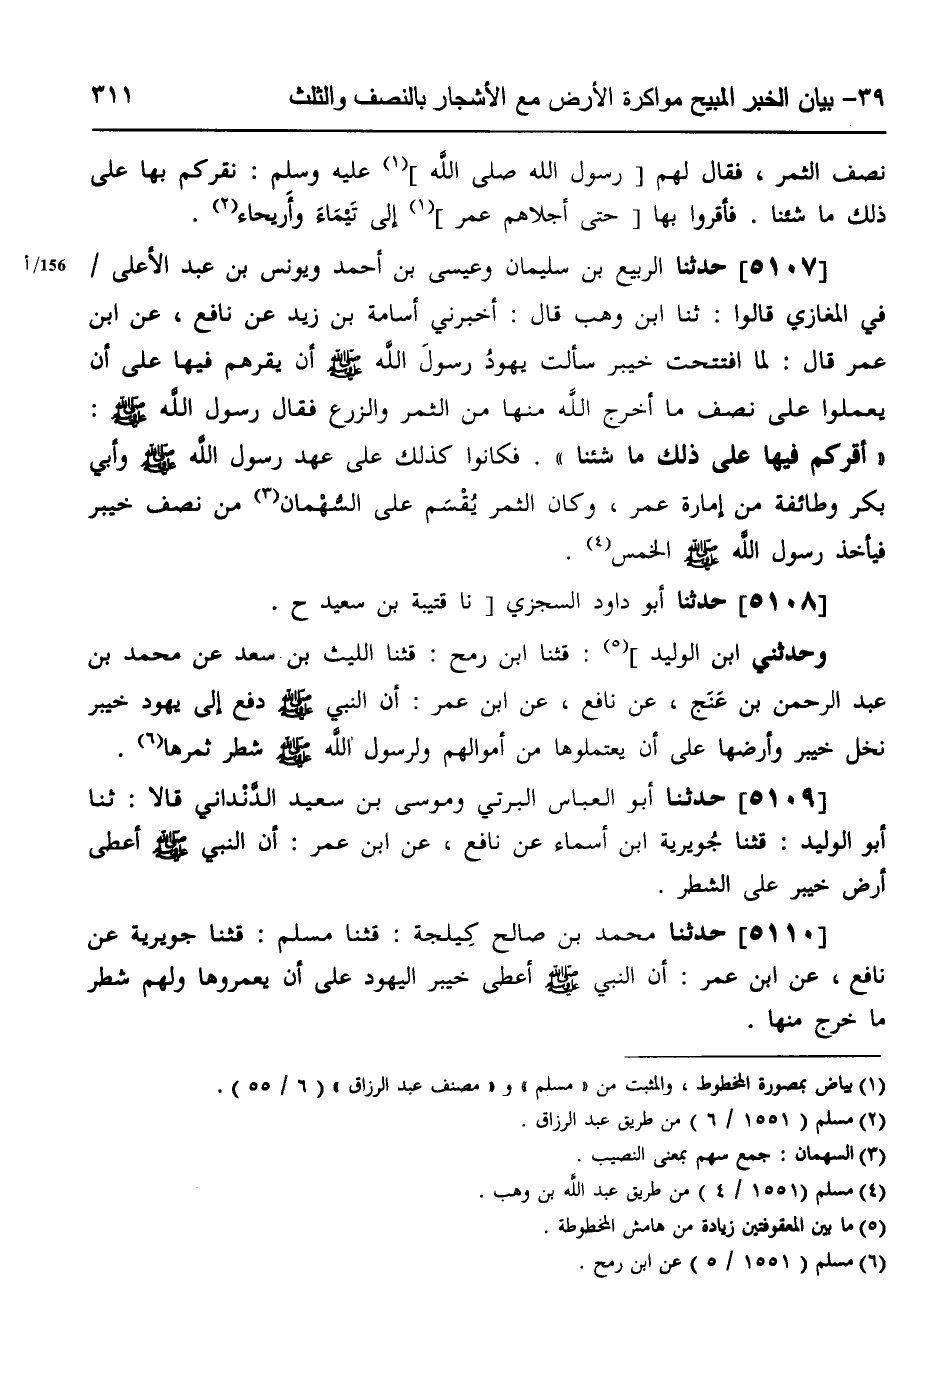 ٣٩- بيان الخبر المبيح مواكرة الأرض مع الأشجار بالنصف والثلث ٣١١
نصف الثمر ، فقال لهم [ رسول الله صلى اللَّه ](١) عليه وسلم : نقركم بها على
ذلك ما شئنا . فأقروا بها [ حتى أجلاهم عمر ](١) إلى تَيْمَاءَ وأَريحاء(٢) .
[٥١٠٧] حدثنا الربيع بن سليمان وعيسى بن أحمد ويونس بن عبد الأعلى / 156/أ
في المغازي قالوا : ثنا ابن وهب قال : أخبرني أسامة بن زيد عن نافع ، عن ابن
عمر قال : لما افتتحت خيبر سألت يهودُ رسولَ اللَّه ﷺ أن يقرهم فيها على أن
يعملوا على نصف ما أخرج اللَّه منها من الثمر والزرع فقال رسول اللَّه ﷺ :
« أقركم فيها على ذلك ما شئنا » . فكانوا كذلك على عهد رسول اللَّه ﷺ وأبي
بكر وطائفة من إمارة عمر ، وكان الثمر يُقْسَم على السُّهْمان(٣) من نصف خيبر
فيأخذ رسول اللَّه ﷺ الخمس(٤) .
[٥١٠٨] حدثنا أبو داود السجزي [ نا قتيبة بن سعيد ح .
وحدثني ابن الوليد ](٥) : قثنا ابن رمح : قثنا الليث بن سعد عن محمد بن
عبد الرحمن بن عَنَج ، عن نافع ، عن ابن عمر : أن النبي ﷺ دفع إلى يهود خيبر
نخل خيبر وأرضها على أن يعتملوها من أموالهم ولرسول اللَّه ﷺ شطر ثمرها(٦) .
[٥١٠٩] حدثنا أبو العباس البرتي وموسى بن سعيد الدَّنْداني قالا : ثنا
أبو الوليد : قثنا جُويرية ابن أسماء عن نافع ، عن ابن عمر : أن النبي ﷺ أعطى
أرض خيبر على الشطر .
[٥١١٠] حدثنا محمد بن صالح كِيلجة : قثنا مسلم : قثنا جويرية عن
نافع ، عن ابن عمر : أن النبي ﷺ أعطى خيبر اليهود على أن يعمروها ولهم شطر
ما خرج منها .
(١) بياض بمصورة المخطوط ، والمثبت من « مسلم » و « مصنف عبد الرزاق » ( ٦ / ٥٥ ) .
(٢) مسلم ( ١٥٥١ / ٦ ) من طريق عبد الرزاق .
(٣) السهمان : جمع سهم بمعنى النصيب .
(٤) مسلم (١٥٥١ / ٤ ) من طريق عبد اللَّه بن وهب .
(٥) ما بين المعقوفتين زيادة من هامش المخطوطة .
(٦) مسلم ( ١٥٥١ / ٥ ) عن ابن رمح .